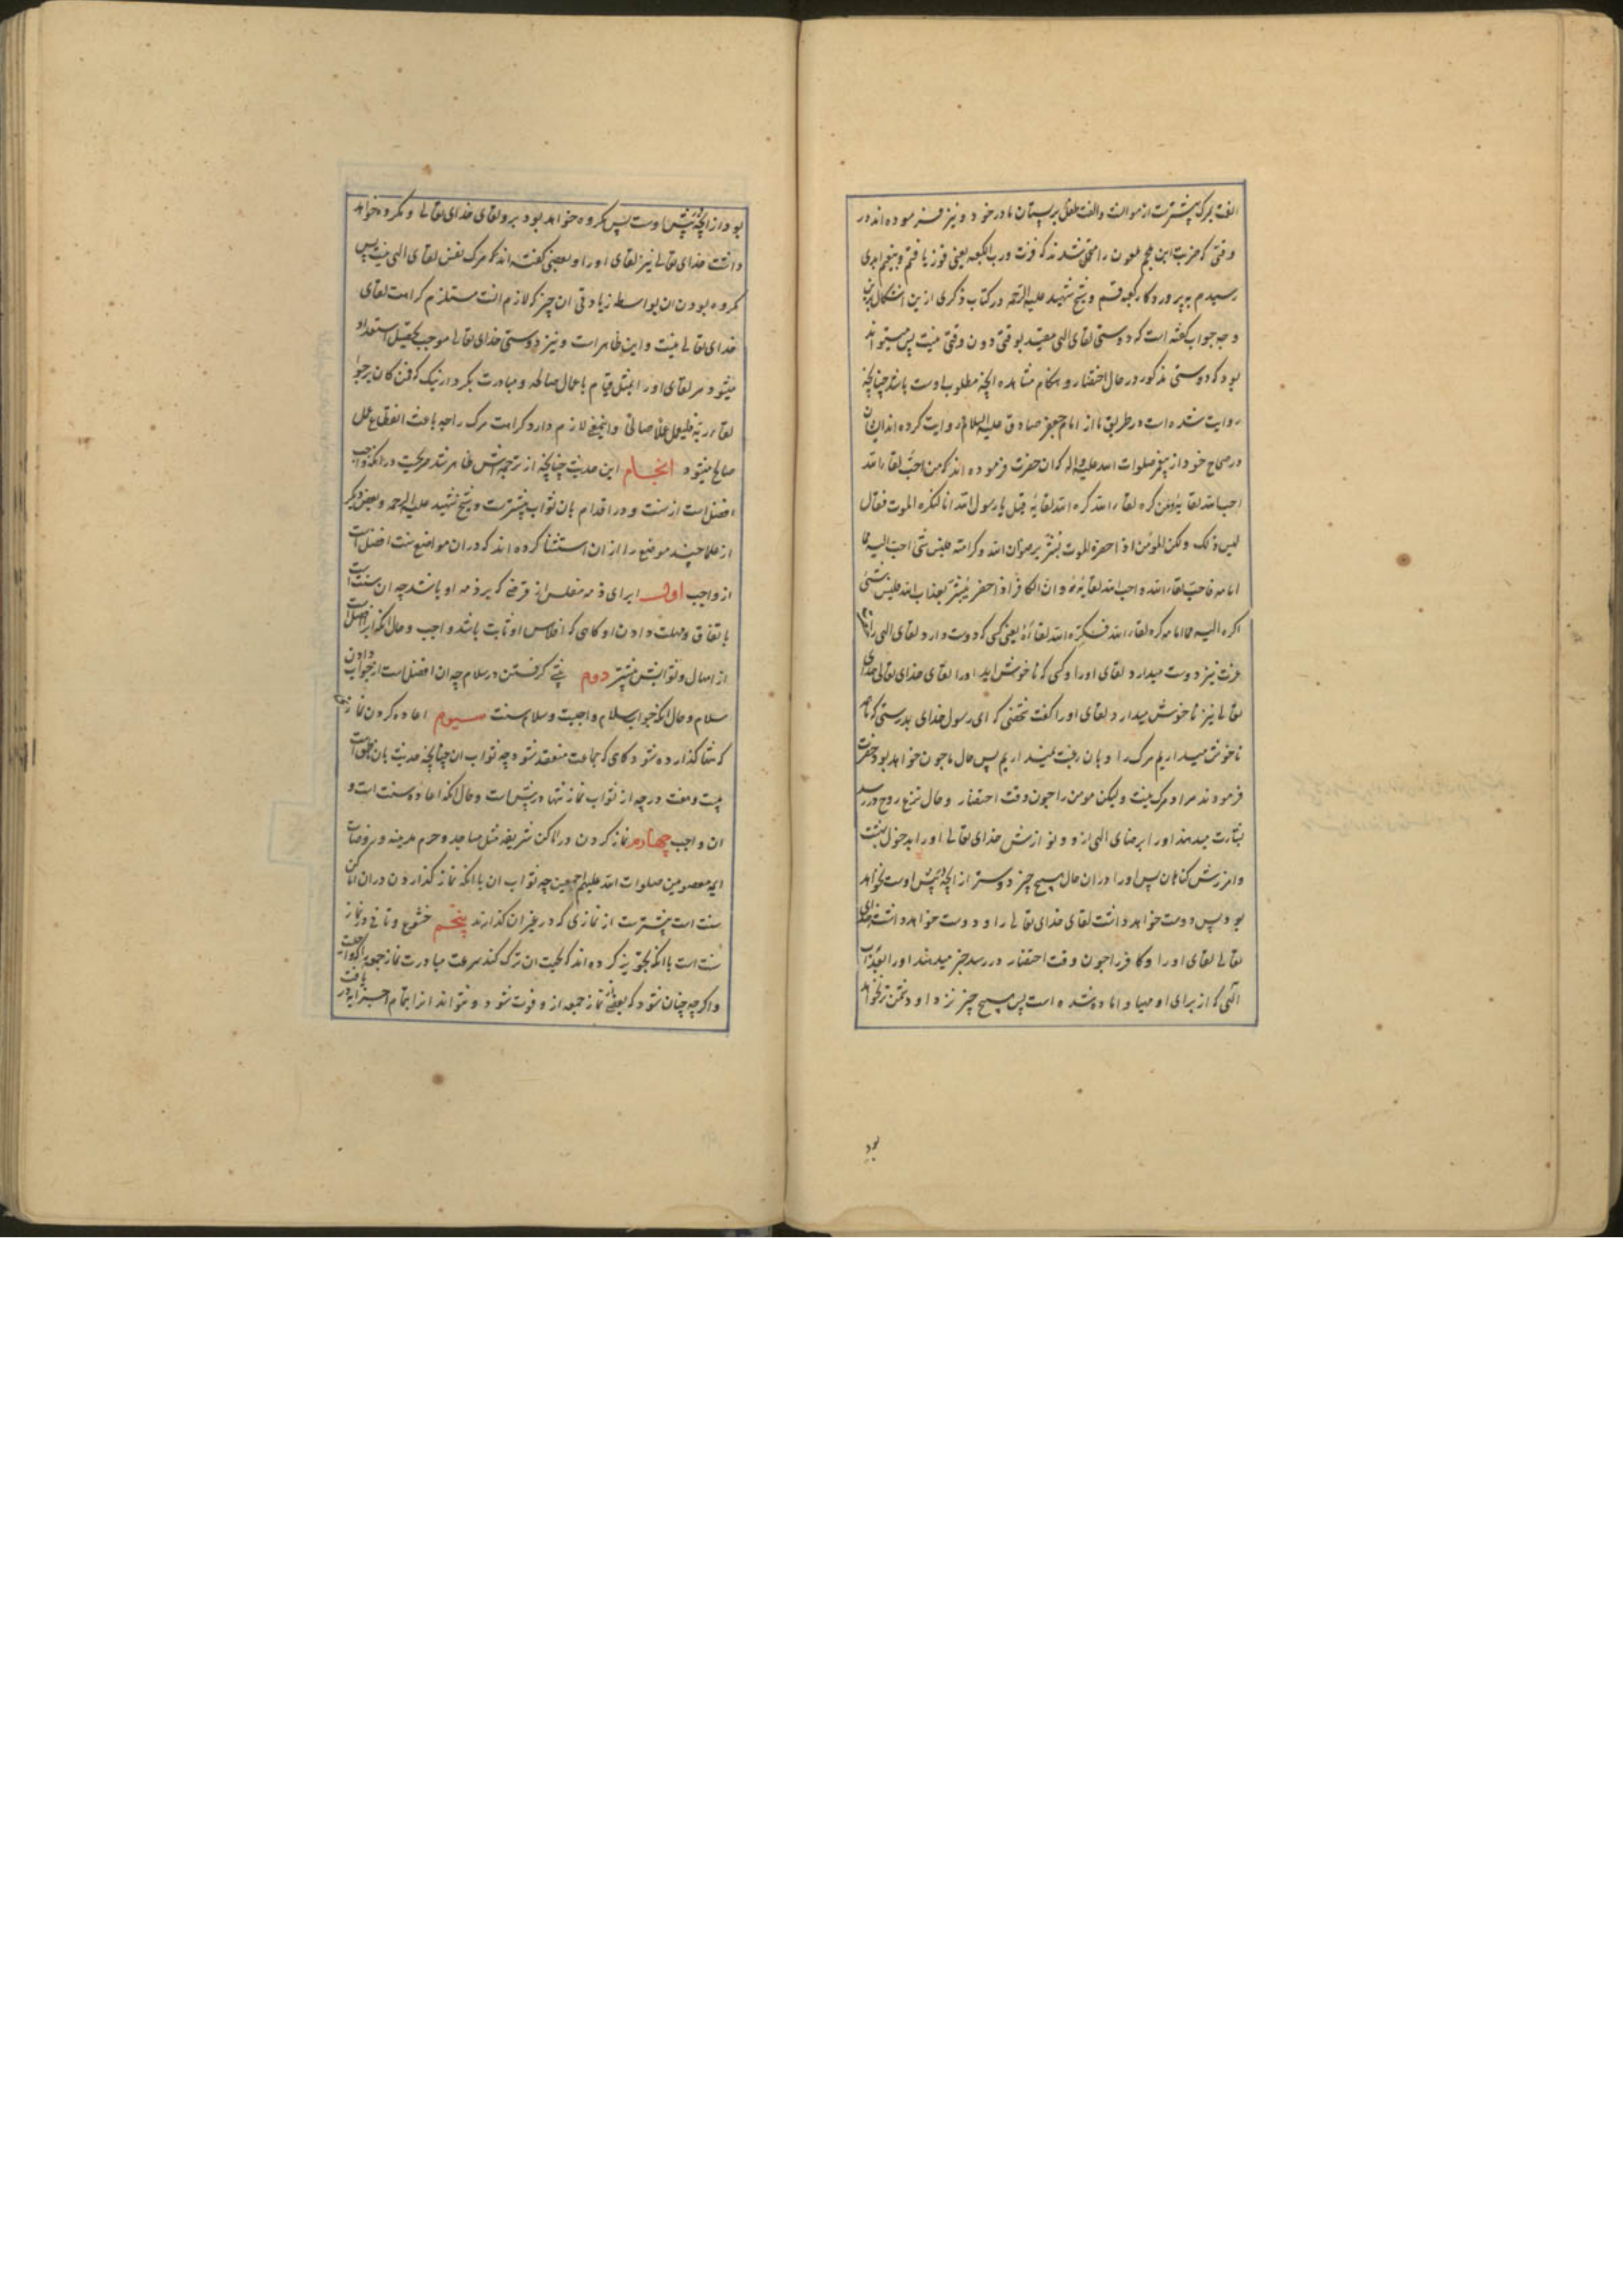 الفت بمرک بیشترست از موالنت والفت طفل بر پستان مادر خود و نیز فرموده اند در
وقتی که ضربت ابن ملجم ملعون را متحمل شدند که فزت ورب الکعبه یعنی فوز یافتم و بنعیم ابدی
رسیدم به پروردکار کعبه قسم و شیخ شهید علیه الرحمه در کتاب ذکری ازین اشکال بدین
وجه جواب کفته است که دوستی لقای الهی مقید بوقتی دون وقتی نیست پس میتواند
بود که دوستی مذکور در حال احتضار و هنکام مشاهده انچه مطلوب اوست باشد چنانچه
روایت شده است در طریق ما از امام جعفر صادق علیه السلام و روایت کرده اند ایشان
در صحاح خود از پیغمبر صلوات الله علیه واله که ان حضرت فرموده اند که من احب لقاء الله
احب الله لقایه ومن کره لقاء الله کره الله لقایه قیل یا رسول الله انا لنکره الموت فقال
لیس ذلک ولکن المؤمن اذا حضره الموت بشر برضوان الله وکرامته فلیس شی احب الیه مما
امامه فاحب لقاء الله واحب الله لقایه وان الکافر اذا حضر بشر بعذاب الله فلیس شئ
اکره الیه مما امامه کره لقاء الله فکره الله لقاءه یعنی کسی که دوست دارد لقای الهی را
عزت نیز دوست میدارد لقای اورا و کسی که ناخوش اید اورا لقای خدای تعالی خدای
تعالی نیز ناخوش میدارد لقای اورا کفت شخصی که ای رسول خدای بدرستی که ما
ناخوش میداریم مرک را و بان رغبت نمیداریم پس حال ما چون خواهد بود حضرت
فرمودند مراد مرک نیست ولیکن مومن را چون وقت احتضار و حال نزع روح در رسد
بشارت میدهند اورا برضای الهی ازو و نوازش خدای تعالی اورا بدخول بهشت
وامرزش کناهان پس اورا دران حال هیچ چیز دوستر از انچه پیش اوست نخواهد
بود پس دوست خواهد داشت لقای خدای تعالی را و دوست خواهد داشت خدای
تعالی لقای اورا و کافر را چون وقت احتضار در رسد خبر میدهند اورا بعذاب
الهی که از برای او مهیا و اماده شده است پس هیچ چیز نزد او دشمن تر نخواهد
بود
بود از انچه پیش اوست پس مکروه خواهد بود برو لقای خدای تعالی و مکروه خواهد
داشت خدای تعالی نیز لقای اورا و بعضی کفته اند که مرک نفس لقای الهی نیست پس
مکروه بودن ان بواسطه زیادتی ان چیز که لازم انست مستلزم کراهت لقای
خدای تعالی نیست و این ظاهر است و نیز دوستی خدای تعالی موجب تحصیل استعداد
میشود مر لقای اورا بمثل قیام باعمال صالحه و مبادرت بکردار نیک که فمن کان یرجوا
لقاء ربه فلیعمل عملا صالحا واینمعنی لازم دارد کراهت مرک را چه باعث انقطاع عمل
صالح میشود انجام این حدیث چنانچه از ترجمه اش ظاهر شد صریحست در انکه واجب
افضل است از سنت و در اقدام بان ثواب بیشترست و شیخ شهید علیه الرحمه و بعضی دیکر
از علما چند موضع را ازان استثنا کرده اند که دران مواضع سنت افضل است
از واجب اول ابرای ذمه مفلس از قرضی که بر ذمه او باشد چه ان سنت است
باتفاق ومهلت دادن او کاهی که افلاس او ثابت باشد واجب و حال انکه ابرا افضل است
از امهال و ثوابش بیشتر دوم پیشی کرفتن در سلام چه ان افضل است از جواب دادن
سلام و حال انکه جواب سلام واجبست و سلام سنت سیوم اعاده کردن نمازی
که تنها کذارده شود کاهی که جماعت منعقد شود چه ثواب ان چنانچه حدیث بان ناطق است
بیست و هفت درجه از ثواب نماز تنها در پیش است و حال انکه اعاده سنت است و
ان واجب چهارم نماز کردن در اماکن شریفه مثل مساجد و حرم مدینه و روضات
ایمه معصومین صلوات الله علیهم اجمعین چه ثواب ان با انکه نماز کذاردن دران اماکن
سنت است بیشترست از نمازی که در غیر ان کذارند پنجم خشوع و تانی در نماز
سنت است با انکه تجویز کرده اند که بجهت ان ترک کند سرعت مبادرت نماز جمعه را که واجب است
واکرچه چنان شود که بعضی از نماز جمعه ازو فوت شود و نتواند انرا بتمام اجزا دریافت